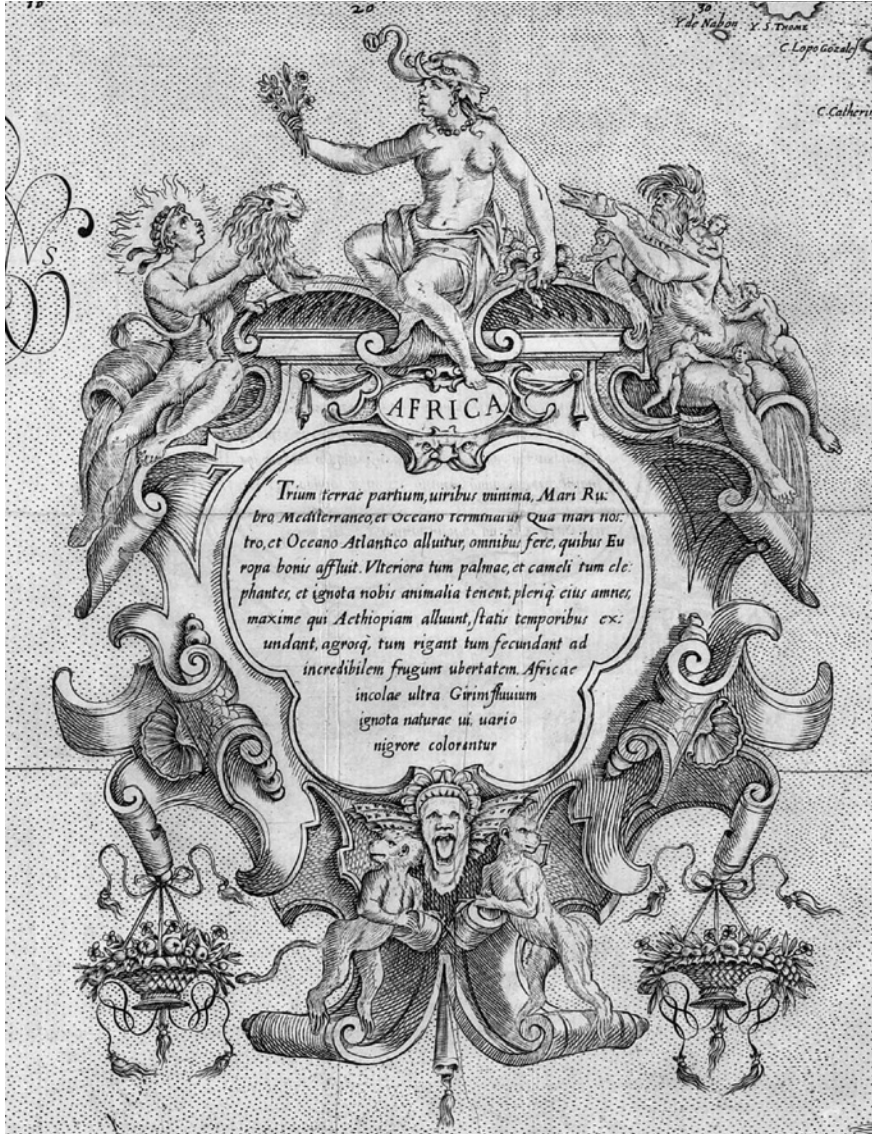 10
20
30
Y de Nabon
Y. S. THOME
C. Lopo Gozales
C. Catherin
AFRICA
Trium terrae partium, uiribus minima, Mari Ru:
bro, Mediterraneo, et Oceano terminatur Qua mari nos:
tro, et Oceano Atlantico alluitur, omnibus fere, quibus Eu
ropa bonis affluit. Vlteriora tum palmae, et cameli tum ele:
phantes, et ignota nobis animalia tenent, pleriq. eius amnes,
maxime qui Aethiopiam alluunt, statis temporibus ex:
undant, agrosq. tum rigant tum fecundant ad
incredibilem frugum ubertatem. Africae
incolae ultra Girim fluuium
ignota naturae ui, uario
nigrore colorentur